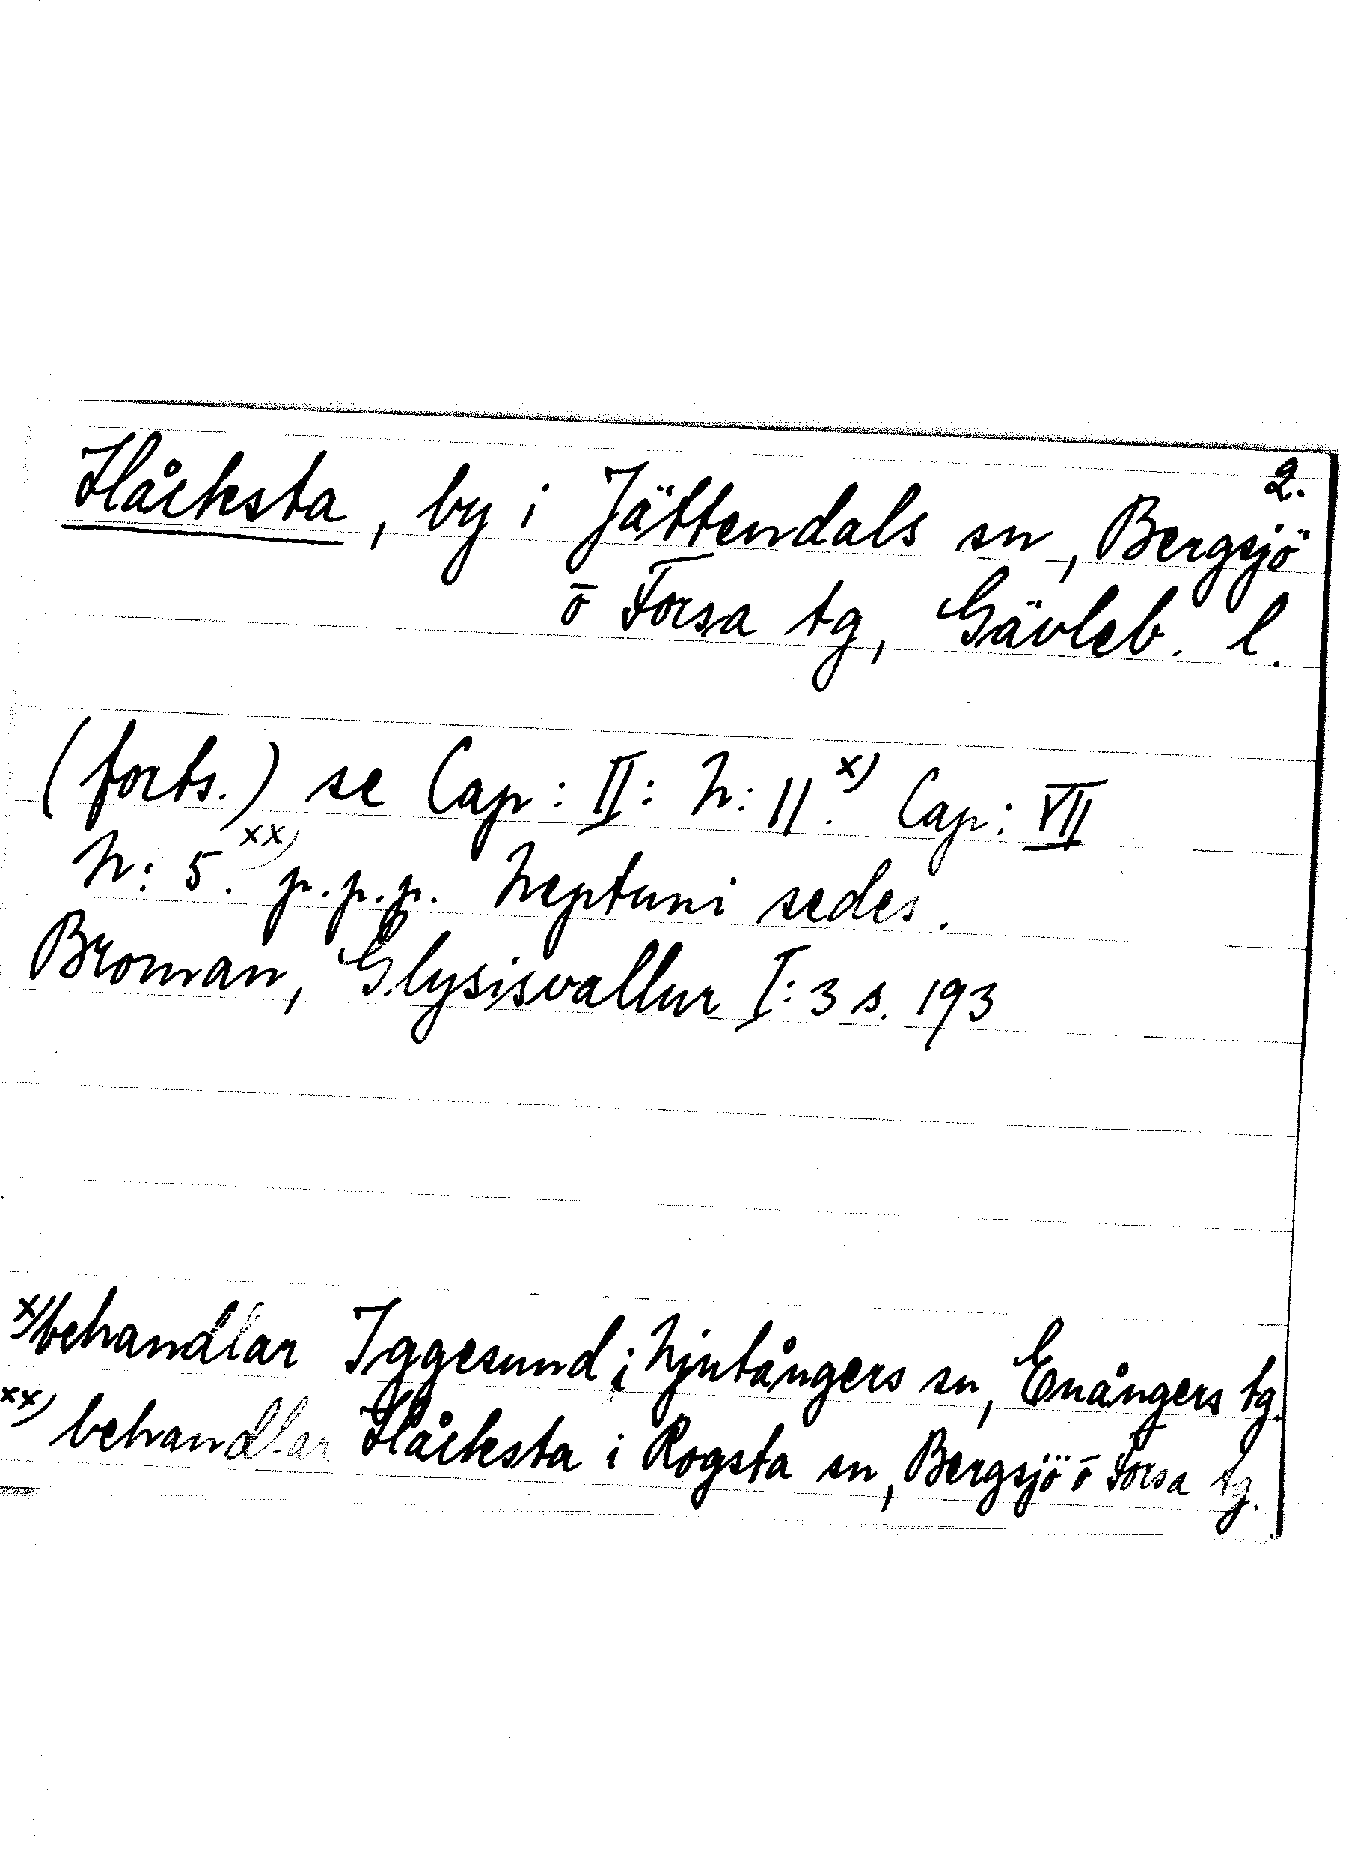 2.
Håcksta, by i Jättendals sn, Bergsjö
ō Forsa tg, Gävleb. l.
(forts.) se Cap: II: N: 11.x) Cap: VII
N: 5.xx) p.p.p. Neptuni sedes.
Broman, Glysisvallur I: 3 s. 193
x) behandlar Iggesund i Njutångers sn, Enångers tg.
xx) behandlar Håcksta i Rogsta sn, Bergsjö ō Forsa tg.